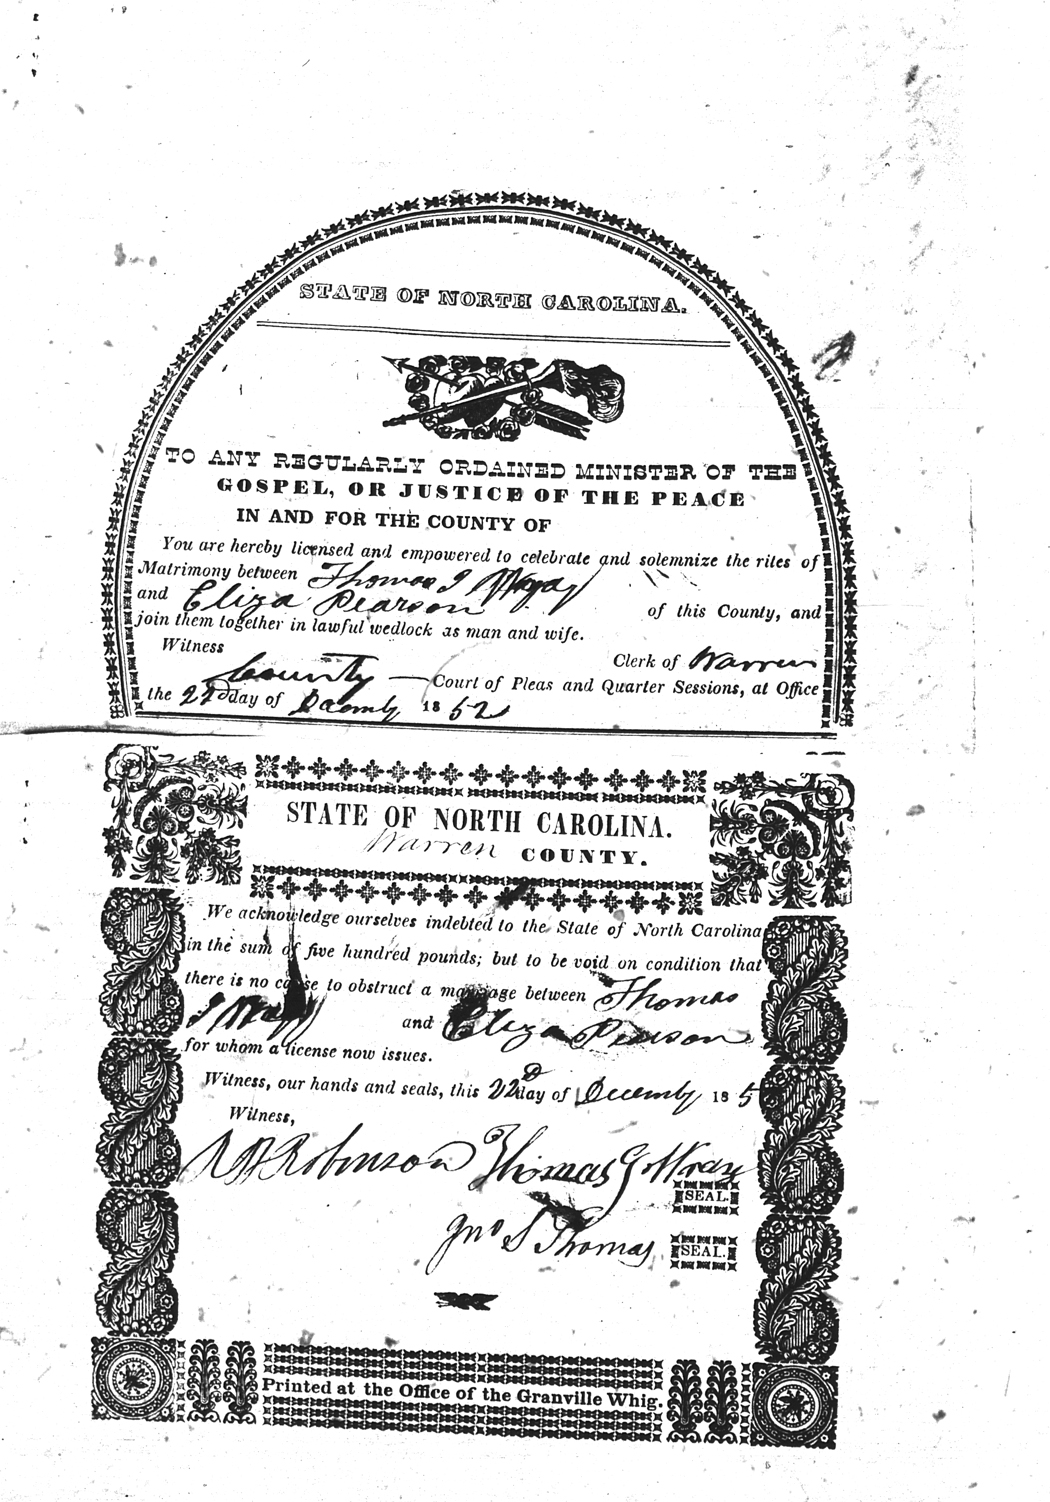 STATE OF NORTH CAROLINA.
TO ANY REGULARLY ORDAINED MINISTER OF THE
GOSPEL, OR JUSTICE OF THE PEACE
IN AND FOR THE COUNTY OF
You are hereby licensed and empowered to celebrate and solemnize the rites of
Matrimony between Thomas J Wray
and Eliza Pearson of this County, and
join them together in lawful wedlock as man and wife.
Witness Clerk of Warren
County — Court of Pleas and Quarter Sessions, at Office
the 22d day of Decemb 1852
STATE OF NORTH CAROLINA.
Warren COUNTY.
We acknowledge ourselves indebted to the State of North Carolina
in the sum of five hundred pounds; but to be void on condition that
there is no cause to obstruct a marriage between Thomas
J Wray and Eliza Pearson
for whom a license now issues.
Witness, our hands and seals, this 22D day of December 185
Witness,
Robinson Thomas J Wray
SEAL.
Jno S Thomas SEAL.
Printed at the Office of the Granville Whig.